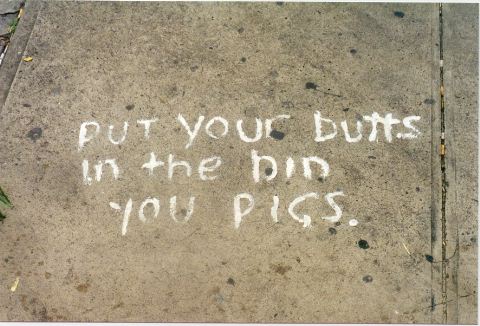 PUT YOUR butts
in the bin
YOU PIGS.